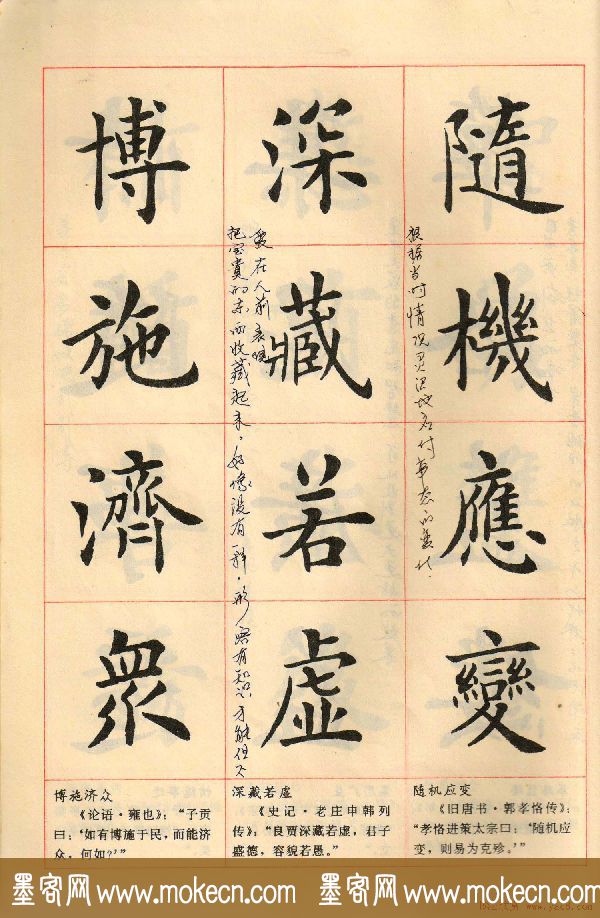 隨機應變
根据当时情况灵活地应付事态的变化.
深藏若虛
把宝贵的东西收藏起来,好像没有一样,形容有知识才能但不
爱在人前表现
博施濟眾
随机应变
《旧唐书·郭孝恪传》:
“孝恪进策太宗曰:‘随机应
变,则易为克殄。’”
深藏若虚
《史记·老庄申韩列
传》:“良贾深藏若虚,君子
盛德,容貌若愚。”
博施济众
《论语·雍也》:“子贡
曰:‘如有博施于民,而能济
众,何如?’”
墨客网 www.mokecn.com 墨客网 www.mokecn.com